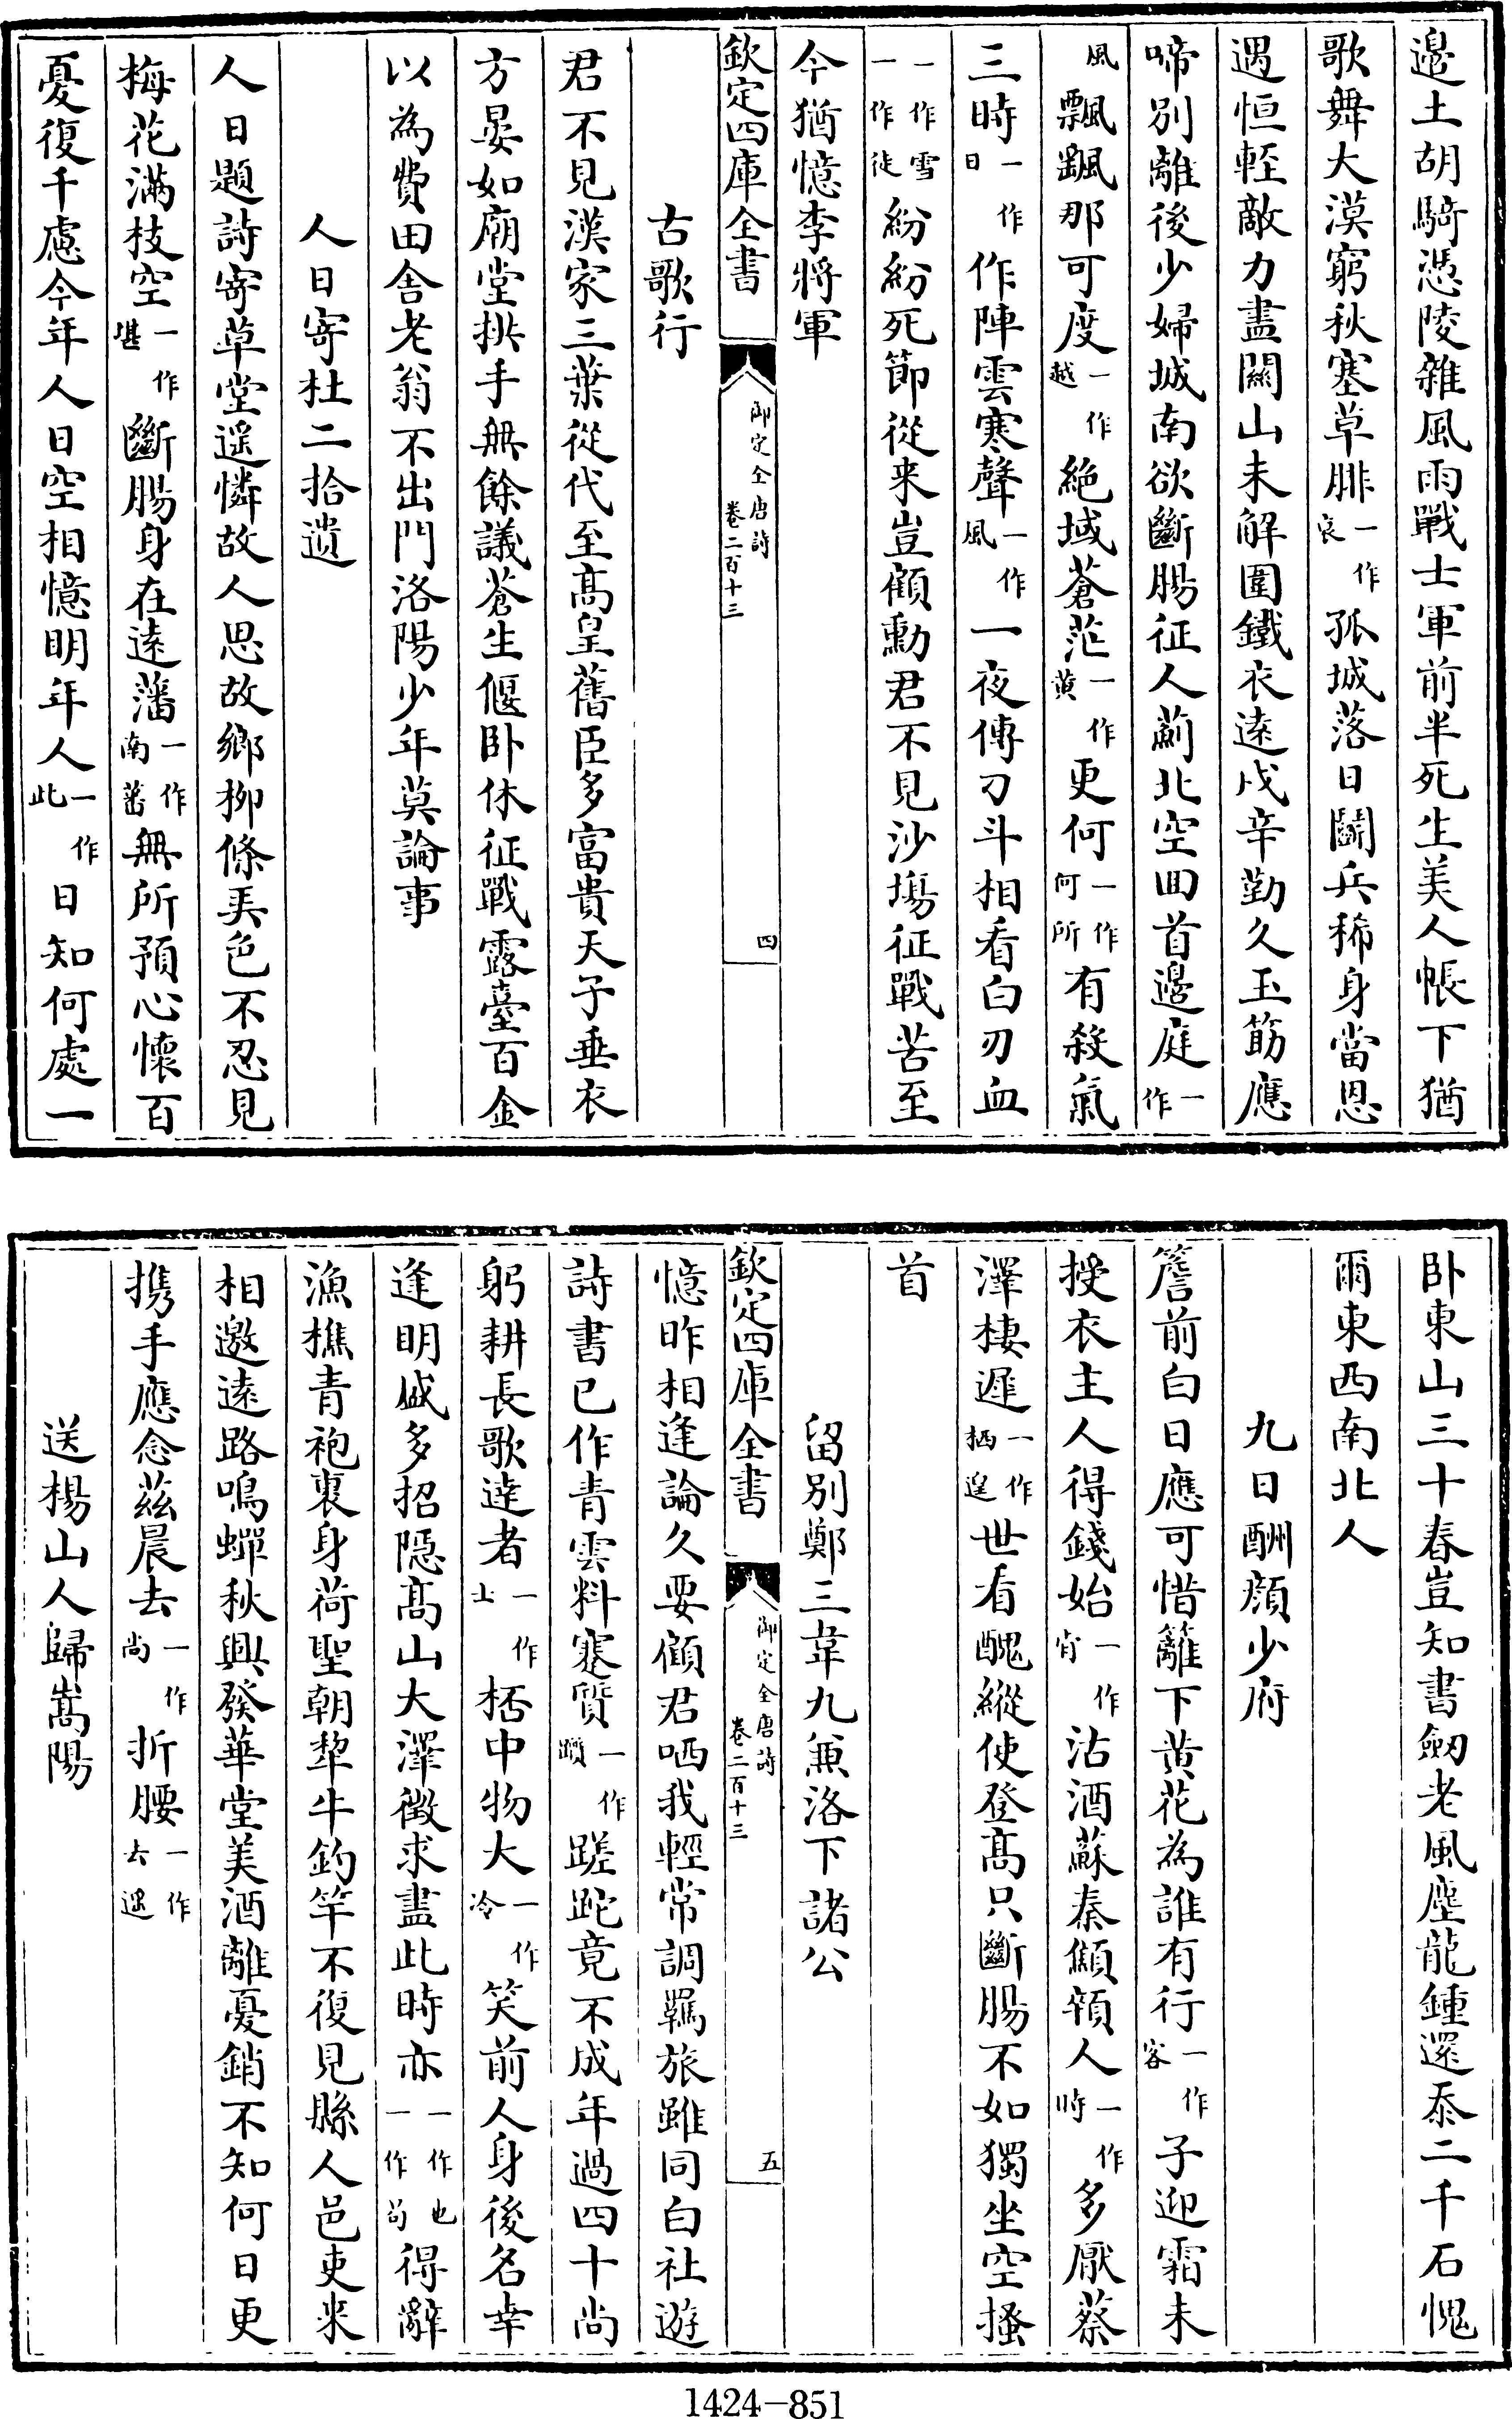 邉土胡騎憑陵雜風雨戰士軍前半死生美人帳下猶
歌舞大漠窮秋塞草腓一作衰孤城落日鬬兵稀身當恩
遇恒輕敵力盡關山未解圍鐵衣逺戍辛勤久玉筯應
啼別離後少婦城南欲斷腸征人薊北空囬首邉庭一作
風飄颻那可度一作越絶域蒼茫一作黄更何一作何所有殺氣
三時一作日作陣雲寒聲一作風一夜傳刁斗相看白刃血
一作雪一作徒紛紛死節從来豈顧勳君不見沙塲征戰苦至
今猶憶李將軍
欽定四庫全書 御定全唐詩卷二百十三 四
古歌行
君不見漢家三葉從代至髙皇舊臣多富貴天子垂衣
方晏如廟堂拱手無餘議蒼生偃卧休征戰露臺百金
以為費田舍老翁不出門洛陽少年莫論事
人日寄杜二拾遺
人日題詩寄草堂遥憐故人思故鄉栁條弄色不忍見
梅花滿枝空一作堪斷腸身在逺藩一作南蕃無所預心懷百
憂復千慮今年人日空相憶明年人一作此日知何處一
卧東山三十春豈知書劒老風塵龍鍾還忝二千石愧
爾東西南北人
九日酬顔少府
簷前白日應可惜籬下黄花為誰有行一作客子迎霜未
授衣主人得錢始一作肯沽酒蘇秦顦顇人一作時多厭蔡
澤棲遲一作栖遑世看醜縱使登髙只斷腸不如獨坐空搔
首
留別鄭三韋九兼洛下諸公
欽定四庫全書 御定全唐詩卷二百十三 五
憶昨相逢論久要顧君哂我輕常調羈旅雖同白社遊
詩書已作青雲料蹇質一作躓蹉跎竟不成年過四十尚
躬耕長歌逹者一作士桮中物大一作冷笑前人身後名幸
逢明盛多招隠髙山大澤徴求盡此時亦一作也一作苟得辭
漁樵青袍裹身荷聖朝犂牛釣竿不復見縣人邑吏来
相邀逺路鳴蟬秋興發華堂美酒離憂銷不知何日更
携手應念兹晨去一作尚折腰一作去遥
送楊山人歸嵩陽
1424-851